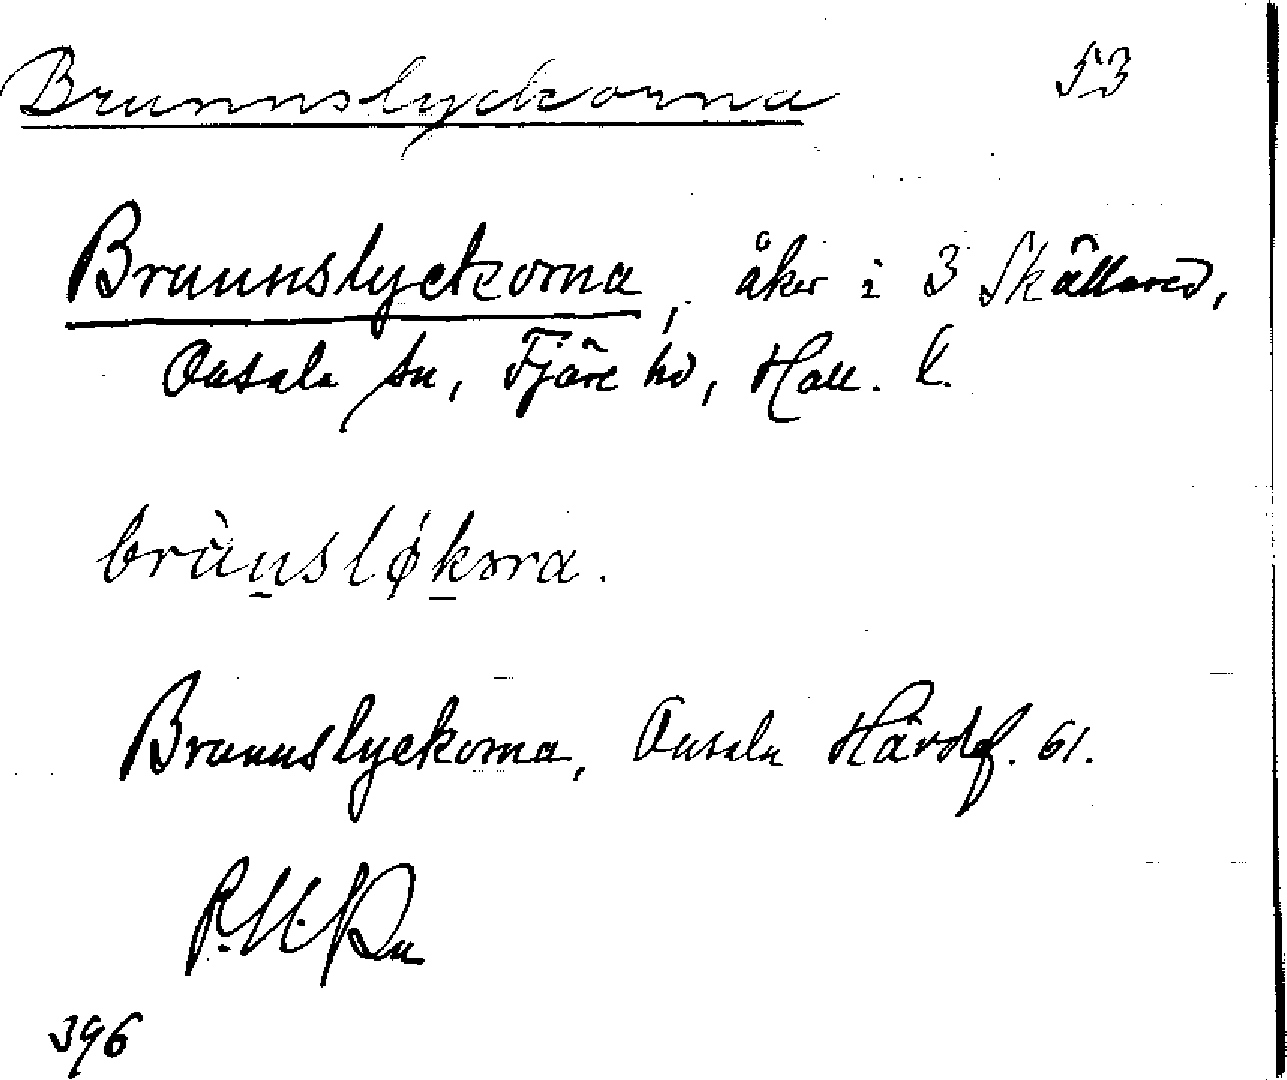 Brunnslyckorna 53
Brunnslyckorna, åker i 3 Skällared,
Onsala sn, Fjäre hd, Hall. l.
brùnsløkɔra.
Brunnslyckorna, Onsala Hävdef. 61.
396